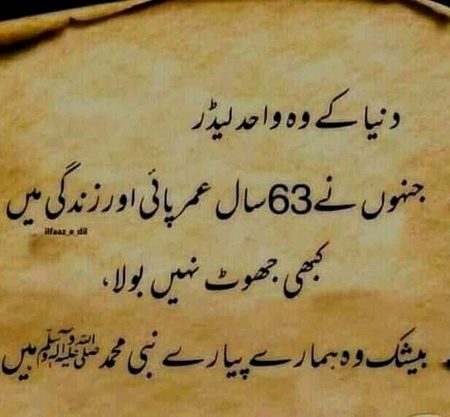 دنیا کے وہ واحد لیڈر
جنہوں نے 63 سال عمر پائی اور زندگی میں
ilfaaz_e_dil
کبھی جھوٹ نہیں بولا،
بیشک وہ ہمارے پیارے نبی محمد ﷺ ہیں